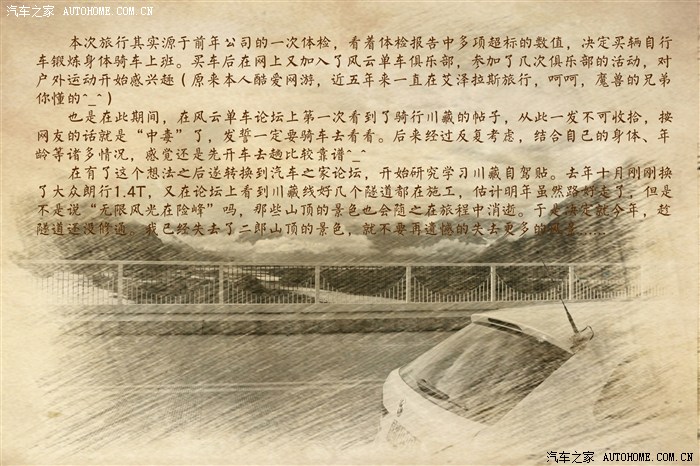 汽车之家 AUTOHOME.COM.CN
本次旅行其实源于前年公司的一次体检，看着体检报告中多项超标的数值，决定买辆自行
车锻炼身体骑车上班。买车后在网上又加入了风云单车俱乐部，参加了几次俱乐部的活动，对
户外运动开始感兴趣（原来本人酷爱网游，近五年来一直在艾泽拉斯旅行，呵呵，魔兽的兄弟
你懂的^_^）
也是在此期间，在风云单车论坛上第一次看到了骑行川藏的帖子，从此一发不可收拾，按
网友的话就是“中毒”了，发誓一定要骑车去看看。后来经过反复考虑，结合自己的身体、年
龄等诸多情况，感觉还是先开车去趟比较靠谱^_^
在有了这个想法之后遂转换到汽车之家论坛，开始研究学习川藏自驾贴。去年十月刚刚换
了大众朗行1.4T，又在论坛上看到川藏线好几个隧道都在施工，估计明年虽然路好走了，但是
不是说“无限风光在险峰”吗，那些山顶的景色也会随之在旅程中消逝。于是决定就今年，趁
隧道还没修通，我已经失去了二郎山顶的景色，就不要再遗憾的失去更多的风景……
汽车之家 AUTOHOME.COM.CN